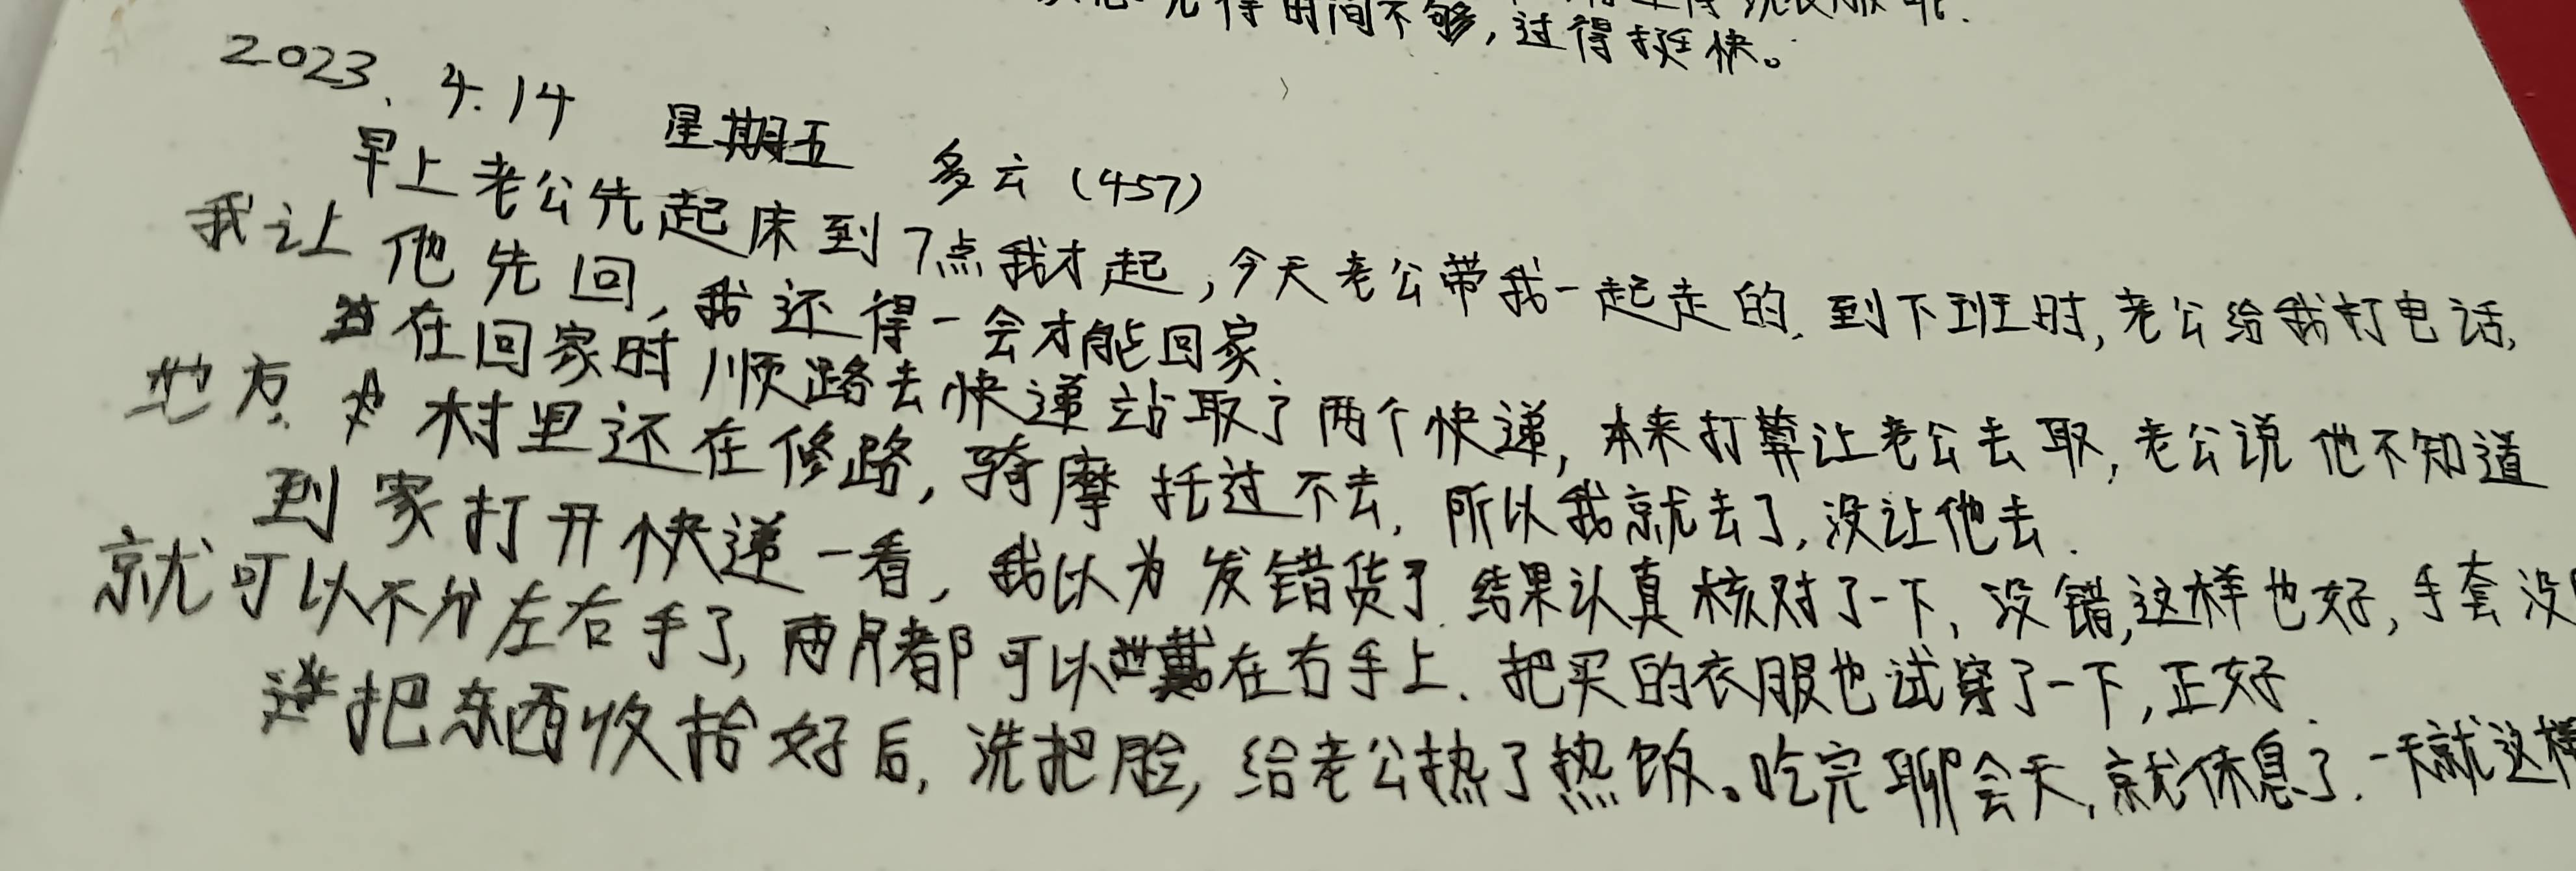 得时间不够，过得挺快。
2023.4.14 星期五 多云（457）
早上老公先起床到7点我才起，今天老公带我一起走的.到下班时，老公给我打电话，
我让他先回，我还得一会才能回家.
在回家时顺路去快递站取了两个快递，本来打算让老公去取，老公说他不知道
地方.村里还在修路，骑摩托过不去，所以我就去了，没让他去.
到家打开快递一看，我以为发错货了.结果认真核对了一下，没错，这样也好，手套没
就可以不分左右手了，两只都可以戴在右手上.把买的衣服也试穿了一下，正好.
把东西收拾好后，洗把脸，给老公热了热饭。吃完聊会天，就休息了.一天就这样